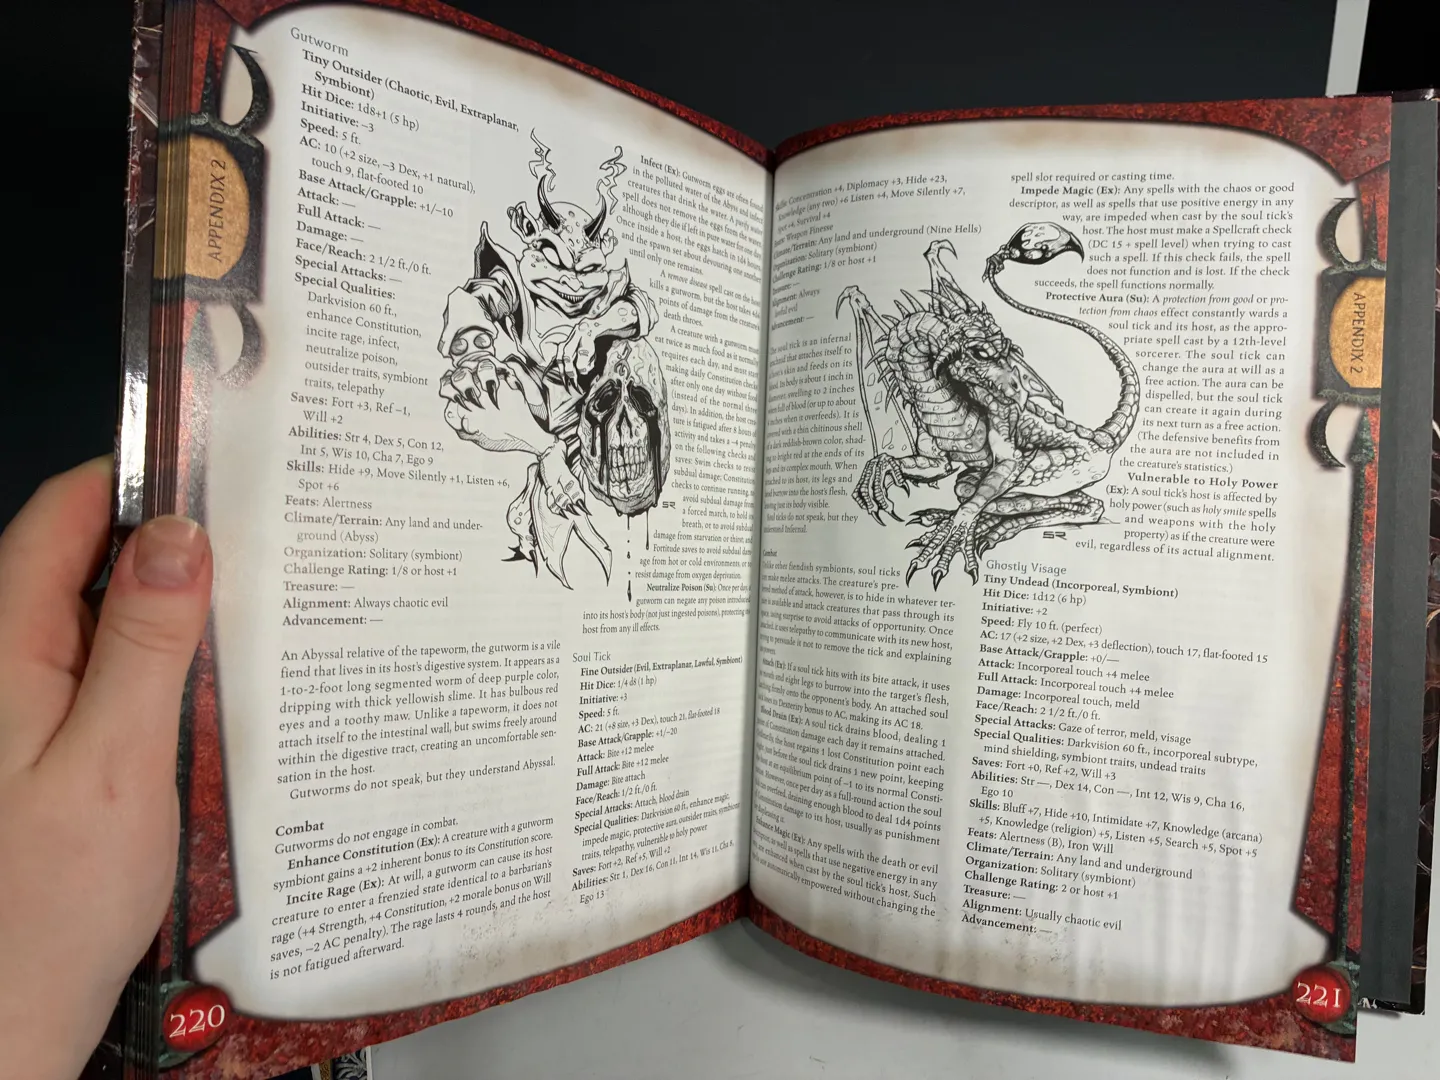 Gutworm
Tiny Outsider (Chaotic, Evil, Extraplanar,
Symbiont)
Hit Dice: 1d8+1 (5 hp)
Initiative: –3
Speed: 5 ft.
AC: 10 (+2 size, –3 Dex, +1 natural),
touch 9, flat-footed 10
Base Attack/Grapple: +1/–10
Attack: —
Full Attack: —
Damage: —
Face/Reach: 2 1/2 ft./0 ft.
Special Attacks: —
Special Qualities:
Darkvision 60 ft.,
enhance Constitution,
incite rage, infect,
neutralize poison,
outsider traits, symbiont
traits, telepathy
Saves: Fort +3, Ref –1,
Will +2
Abilities: Str 4, Dex 5, Con 12,
Int 5, Wis 10, Cha 7, Ego 9
Skills: Hide +9, Move Silently +1, Listen +6,
Spot +6
Feats: Alertness
Climate/Terrain: Any land and under-
ground (Abyss)
Organization: Solitary (symbiont)
Challenge Rating: 1/8 or host +1
Treasure: —
Alignment: Always chaotic evil
Advancement: —
An Abyssal relative of the tapeworm, the gutworm is a vile
fiend that lives in its host's digestive system. It appears as a
1-to-2-foot long segmented worm of deep purple color,
dripping with thick yellowish slime. It has bulbous red
eyes and a toothy maw. Unlike a tapeworm, it does not
attach itself to the intestinal wall, but swims freely around
within the digestive tract, creating an uncomfortable sen-
sation in the host.
Gutworms do not speak, but they understand Abyssal.
Combat
Gutworms do not engage in combat.
Enhance Constitution (Ex): A creature with a gutworm
symbiont gains a +2 inherent bonus to its Constitution score.
Incite Rage (Ex): At will, a gutworm can cause its host
creature to enter a frenzied state identical to a barbarian's
rage (+4 Strength, +4 Constitution, +2 morale bonus on Will
saves, –2 AC penalty). The rage lasts 4 rounds, and the host
is not fatigued afterward.
Infect (Ex): Gutworm eggs are often found
in the polluted water of the Abyss and infect
creatures that drink the water. A purify water
spell does not remove the eggs from the water,
although they die if left in pure water for one day.
Once inside a host, the eggs hatch in 1d4 hours,
and the spawn set about devouring one another
until only one remains.
A remove disease spell cast on the host
kills a gutworm, but the host takes
points of damage from the creature's
death throes.
A creature with a gutworm must
eat twice as much food as it normally
requires each day, and must start
making daily Constitution checks
after only one day without food
(instead of the normal three
days). In addition, the host crea-
ture is fatigued after 8 hours of
activity and takes a –4 penalty
on the following checks and
saves: Swim checks to resist
subdual damage; Constitution
checks to continue running, to
avoid subdual damage from
a forced march, to hold its
breath, or to avoid subdual
damage from starvation or thirst; and
Fortitude saves to avoid subdual dam-
age from hot or cold environments, or to
resist damage from oxygen deprivation.
Neutralize Poison (Su): Once per day, a
gutworm can negate any poison introduced
into its host's body (not just ingested poisons), protecting its
host from any ill effects.
Soul Tick
Fine Outsider (Evil, Extraplanar, Lawful, Symbiont)
Hit Dice: 1/4 d8 (1 hp)
Initiative: +3
Speed: 5 ft.
AC: 21 (+8 size, +3 Dex), touch 21, flat-footed 18
Base Attack/Grapple: +1/–20
Attack: Bite +12 melee
Full Attack: Bite +12 melee
Damage: Bite attach
Face/Reach: 1/2 ft./0 ft.
Special Attacks: Attach, blood drain
Special Qualities: Darkvision 60 ft., enhance magic,
impede magic, protective aura, outsider traits, symbiont
traits, telepathy, vulnerable to holy power
Saves: Fort +2, Ref +5, Will +2
Abilities: Str 1, Dex 16, Con 11, Int 14, Wis 11, Cha 8,
Ego 13
APPENDIX 2
220
SR
Skills: Concentration +4, Diplomacy +3, Hide +23,
Knowledge (any two) +6 Listen +4, Move Silently +7,
Spot +4, Survival +4
Weapon Finesse
Climate/Terrain: Any land and underground (Nine Hells)
Organization: Solitary (symbiont)
Challenge Rating: 1/8 or host +1
Treasure: —
Alignment: Always
lawful evil
Advancement: —
The soul tick is an infernal
that attaches itself to
skin and feeds on its
blood. Its body is about 1 inch in
swelling to 2 inches
full of blood (or up to about
inches when it overfeeds). It is
covered with a thin chitinous shell
of a dark reddish-brown color, shad-
ing to bright red at the ends of its
legs and its complex mouth. When
attached to its host, its legs and
head burrow into the host's flesh,
leaving just its body visible.
Soul ticks do not speak, but they
understand Infernal.
Combat
Unlike other fiendish symbionts, soul ticks
can make melee attacks. The creature's pre-
ferred method of attack, however, is to hide in whatever ter-
rain is available and attack creatures that pass through its
space, using surprise to avoid attacks of opportunity. Once
attached, it uses telepathy to communicate with its new host,
trying to persuade it not to remove the tick and explaining
its powers.
Attach (Ex): If a soul tick hits with its bite attack, it uses
its mouth and eight legs to burrow into the target's flesh,
latching firmly onto the opponent's body. An attached soul
tick loses its Dexterity bonus to AC, making its AC 18.
Blood Drain (Ex): A soul tick drains blood, dealing 1
point of Constitution damage each day it remains attached.
the host regains 1 lost Constitution point each
night, just before the soul tick drains 1 new point, keeping
at an equilibrium point of –1 to its normal Consti-
tution. However, once per day as a full-round action the soul
tick can overfeed, draining enough blood to deal 1d4 points
of Constitution damage to its host, usually as punishment
for displeasing it.
Enhance Magic (Ex): Any spells with the death or evil
descriptor, as well as spells that use negative energy in any
way, are enhanced when cast by the soul tick's host. Such
spells are automatically empowered without changing the
spell slot required or casting time.
Impede Magic (Ex): Any spells with the chaos or good
descriptor, as well as spells that use positive energy in any
way, are impeded when cast by the soul tick's
host. The host must make a Spellcraft check
(DC 15 + spell level) when trying to cast
such a spell. If this check fails, the spell
does not function and is lost. If the check
succeeds, the spell functions normally.
Protective Aura (Su): A protection from good or pro-
tection from chaos effect constantly wards a
soul tick and its host, as the appro-
priate spell cast by a 12th-level
sorcerer. The soul tick can
change the aura at will as a
free action. The aura can be
dispelled, but the soul tick
can create it again during
its next turn as a free action.
(The defensive benefits from
the aura are not included in
the creature's statistics.)
Vulnerable to Holy Power
(Ex): A soul tick's host is affected by
holy power (such as holy smite spells
and weapons with the holy
property) as if the creature were
evil, regardless of its actual alignment.
SR
Ghostly Visage
Tiny Undead (Incorporeal, Symbiont)
Hit Dice: 1d12 (6 hp)
Initiative: +2
Speed: Fly 10 ft. (perfect)
AC: 17 (+2 size, +2 Dex, +3 deflection), touch 17, flat-footed 15
Base Attack/Grapple: +0/—
Attack: Incorporeal touch +4 melee
Full Attack: Incorporeal touch +4 melee
Damage: Incorporeal touch, meld
Face/Reach: 2 1/2 ft./0 ft.
Special Attacks: Gaze of terror, meld, visage
Special Qualities: Darkvision 60 ft., incorporeal subtype,
mind shielding, symbiont traits, undead traits
Saves: Fort +0, Ref +2, Will +3
Abilities: Str —, Dex 14, Con —, Int 12, Wis 9, Cha 16,
Ego 10
Skills: Bluff +7, Hide +10, Intimidate +7, Knowledge (arcana)
+5, Knowledge (religion) +5, Listen +5, Search +5, Spot +5
Feats: Alertness (B), Iron Will
Climate/Terrain: Any land and underground
Organization: Solitary (symbiont)
Challenge Rating: 2 or host +1
Treasure: —
Alignment: Usually chaotic evil
Advancement: —
APPENDIX 2
221